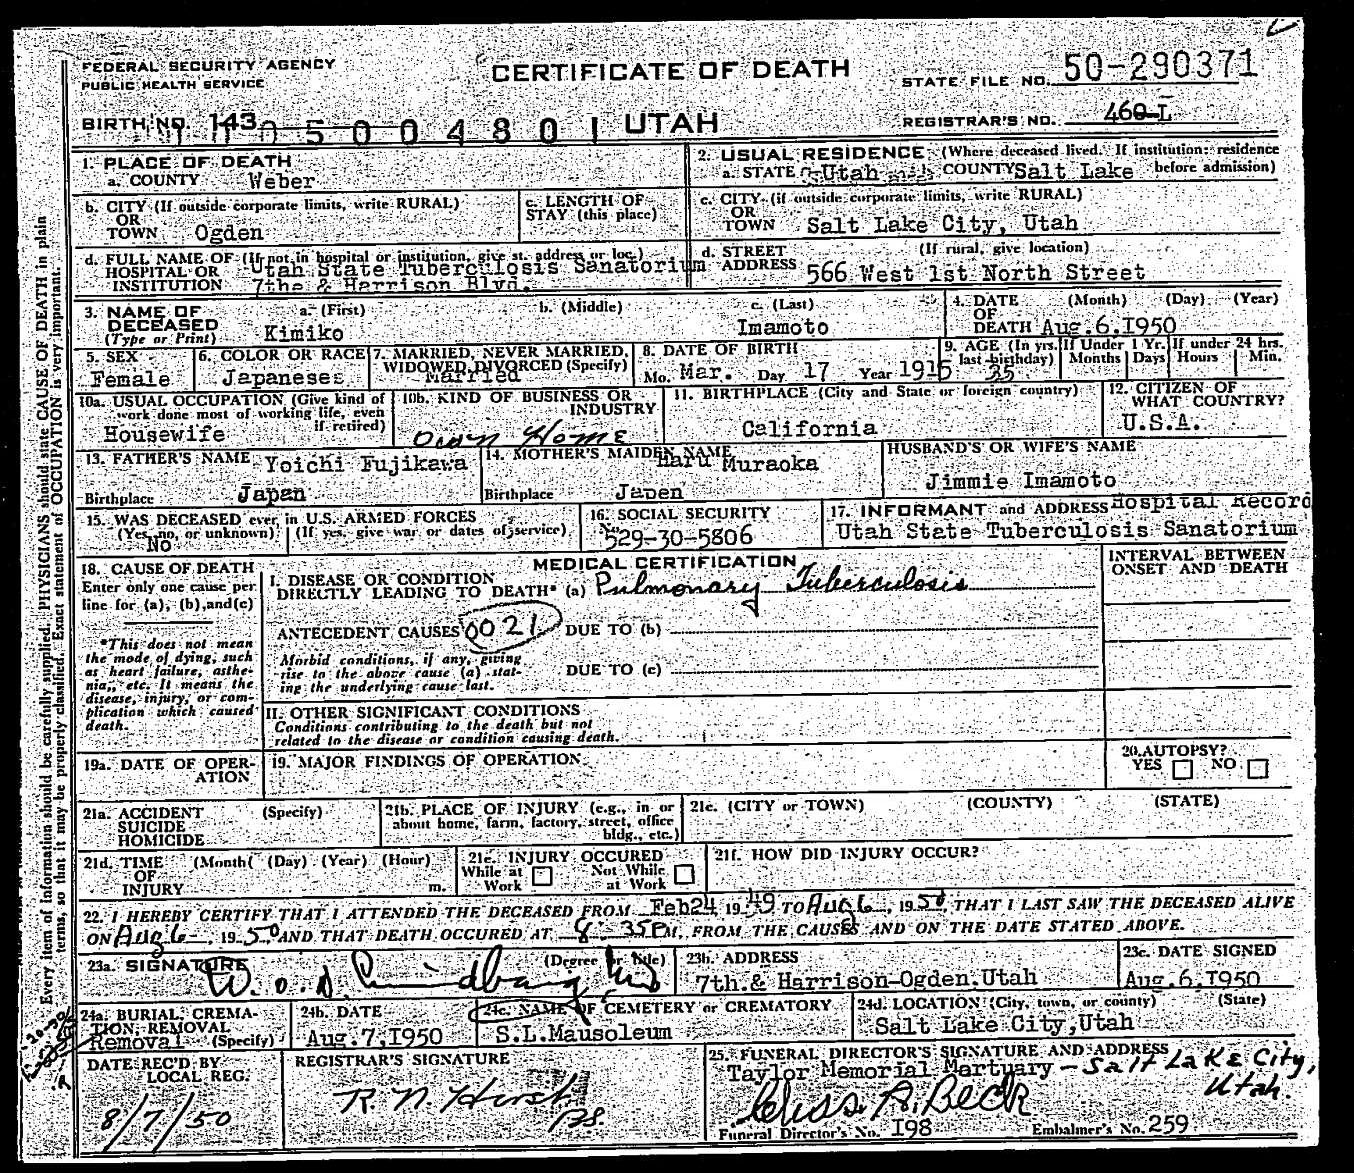 FEDERAL SECURITY AGENCY
PUBLIC HEALTH SERVICE
CERTIFICATE OF DEATH
STATE FILE NO. 50-290371
BIRTH NO. 143
0 5 0 0 4 8 0 1
UTAH
REGISTRAR'S NO. 460-L
1. PLACE OF DEATH
a. COUNTY Weber
2. USUAL RESIDENCE (Where deceased lived. If institution: residence before admission)
a. STATE Utah COUNTY Salt Lake
b. CITY (If outside corporate limits, write RURAL)
OR
TOWN Ogden
c. LENGTH OF
STAY (this place)
c. CITY (if outside corporate limits, write RURAL)
OR
TOWN Salt Lake City, Utah
d. FULL NAME OF (If not in hospital or institution, give st. address or loc.)
HOSPITAL OR Utah State Tuberculosis Sanatorium
INSTITUTION 7the & Harrison Blvd.
d. STREET (If rural, give location)
ADDRESS 566 West 1st North Street
3. NAME OF DECEASED
(Type or Print)
a. (First) Kimiko
b. (Middle)
c. (Last) Imamoto
4. DATE (Month) (Day) (Year)
OF
DEATH Aug.6.I950
5. SEX
Female
6. COLOR OR RACE
Japanese
7. MARRIED, NEVER MARRIED,
WIDOWED, DIVORCED (Specify)
Married
8. DATE OF BIRTH
Mo. Mar. Day 17 Year 1915
9. AGE (In yrs. last birthday) 35
If Under 1 Yr. Months Days
If under 24 hrs. Hours Min.
10a. USUAL OCCUPATION (Give kind of
work done most of working life, even
if retired)
Housewife
10b. KIND OF BUSINESS OR
INDUSTRY
Own Home
11. BIRTHPLACE (City and State or foreign country)
California
12. CITIZEN OF
WHAT COUNTRY?
U.S.A.
13. FATHER'S NAME Yoichi Fujikawa
Birthplace Japan
14. MOTHER'S MAIDEN NAME
Haru Muraoka
Birthplace Japen
HUSBAND'S OR WIFE'S NAME
Jimmie Imamoto
15. WAS DECEASED ever in U.S. ARMED FORCES
(Yes, no, or unknown) (If yes, give war or dates of service)
No
16. SOCIAL SECURITY
No. 529-30-5806
17. INFORMANT and ADDRESS Hospital Record
Utah State Tuberculosis Sanatorium
18. CAUSE OF DEATH
Enter only one cause per
line for (a), (b), and (c)
*This does not mean
the mode of dying, such
as heart failure, asthe-
nia, etc. It means the
disease, injury, or com-
plication which caused
death.
MEDICAL CERTIFICATION
I. DISEASE OR CONDITION
DIRECTLY LEADING TO DEATH* (a) Pulmonary Tuberculosis
ANTECEDENT CAUSES 0021 DUE TO (b)
Morbid conditions, if any, giving
rise to the above cause (a) stat-
ing the underlying cause last.
DUE TO (c)
II. OTHER SIGNIFICANT CONDITIONS
Conditions contributing to the death but not
related to the disease or condition causing death.
INTERVAL BETWEEN
ONSET AND DEATH
19a. DATE OF OPER-
ATION
19. MAJOR FINDINGS OF OPERATION
20. AUTOPSY?
YES NO
21a. ACCIDENT (Specify)
SUICIDE
HOMICIDE
21b. PLACE OF INJURY (e.g., in or
about home, farm, factory, street, office
bldg., etc.)
21c. (CITY or TOWN) (COUNTY) (STATE)
21d. TIME (Month( (Day) (Year) (Hour)
OF
INJURY m.
21e. INJURY OCCURED
While at Work
Not While at Work
21f. HOW DID INJURY OCCUR?
22. I HEREBY CERTIFY THAT I ATTENDED THE DECEASED FROM Feb24 19 49 TO Aug 6, 19 50, THAT I LAST SAW THE DECEASED ALIVE
ON Aug 6, 19 50, AND THAT DEATH OCCURED AT 8 35P M, FROM THE CAUSES AND ON THE DATE STATED ABOVE.
23a. SIGNATURE (Degree or title)
W. O. D.
23b. ADDRESS
7th.& Harrison-Ogden,Utah
23c. DATE SIGNED
Aug.6.I950
24a. BURIAL, CREMA-
TION, REMOVAL
Removal (Specify)
24b. DATE
Aug.7,I950
24c. NAME OF CEMETERY or CREMATORY
S.L.Mausoleum
24d. LOCATION (City, town, or county) (State)
Salt Lake City,Utah
DATE REC'D BY
LOCAL REG.
8/7/50
REGISTRAR'S SIGNATURE
R. N. Hirst
25. FUNERAL DIRECTOR'S SIGNATURE AND ADDRESS
Taylor Memorial Martuary - Salt Lake City,
Utah.
A. Beck
Funeral Director's No. I98
Embalmer's No. 259
Every item of information should be carefully supplied. PHYSICIANS should state CAUSE OF DEATH in plain
terms, so that it may be properly classified. Exact statement of OCCUPATION is very important.